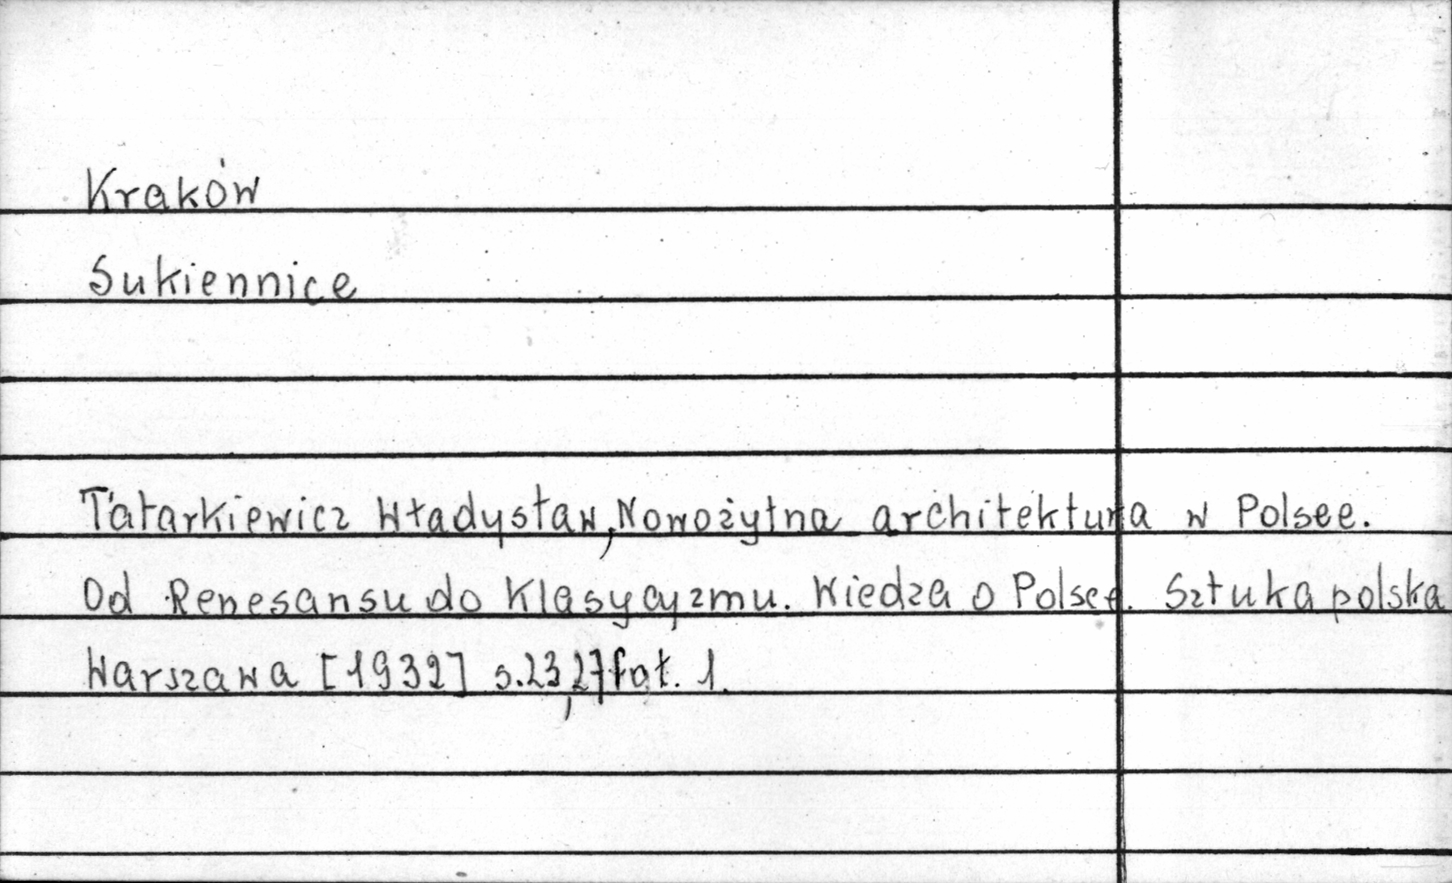 Kraków
Sukiennice
Tatarkiewicz Władysław, Nowożytna architektura w Polsce.
Od Renesansu do Klasycyzmu. Wiedza o Polsce. Sztuka polska
Warszawa [1932] s.23,27 fot. 1.